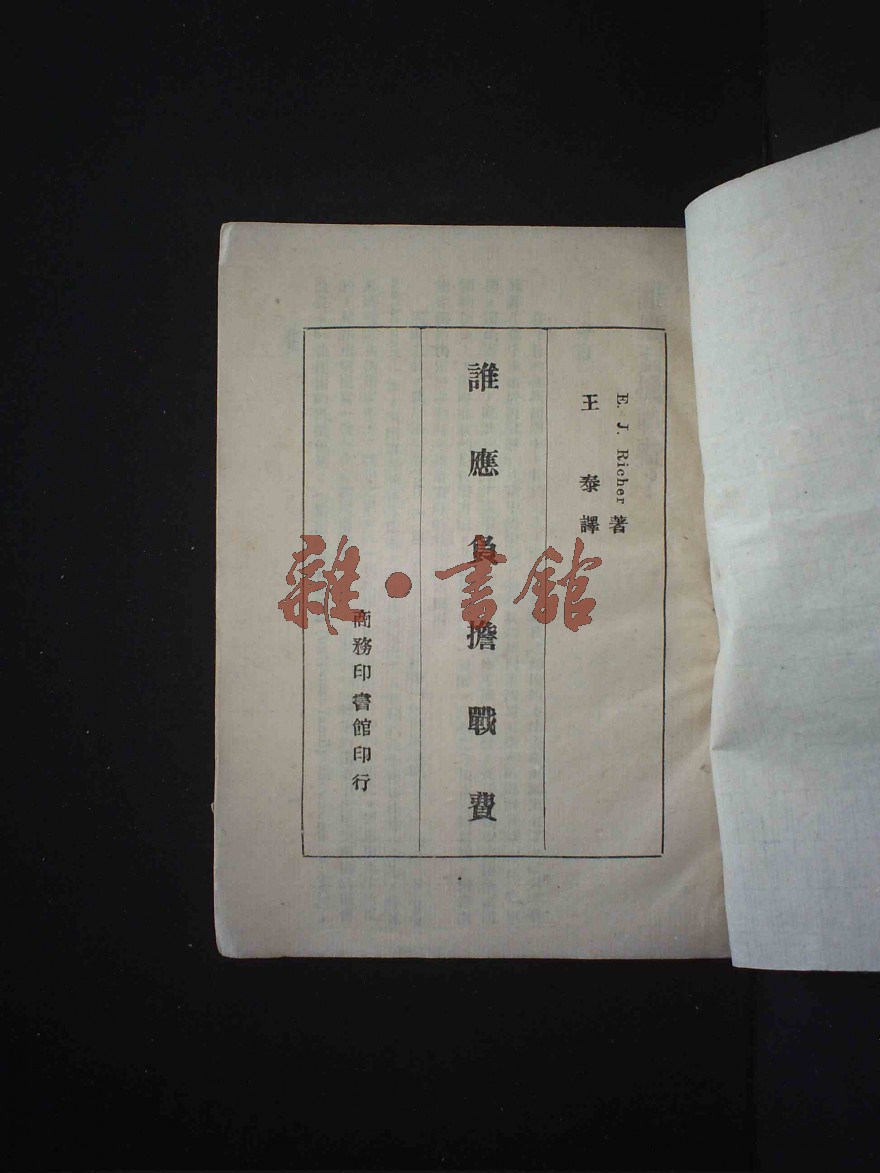 E. J. Richer 著
王泰譯
誰應負擔戰費
商務印書館印行
雜·書館